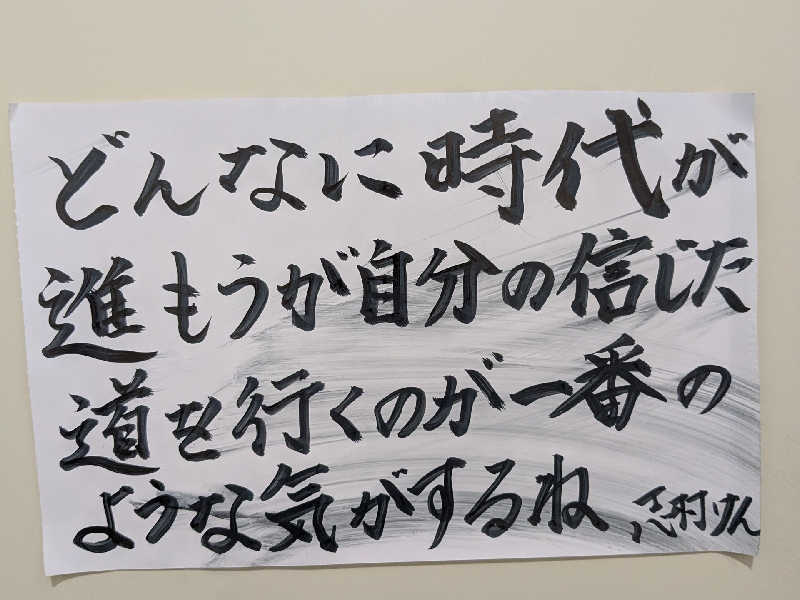 どんなに時代が
進もうが自分の信じた
道を行くのが一番の
ような気がするね、志村けん